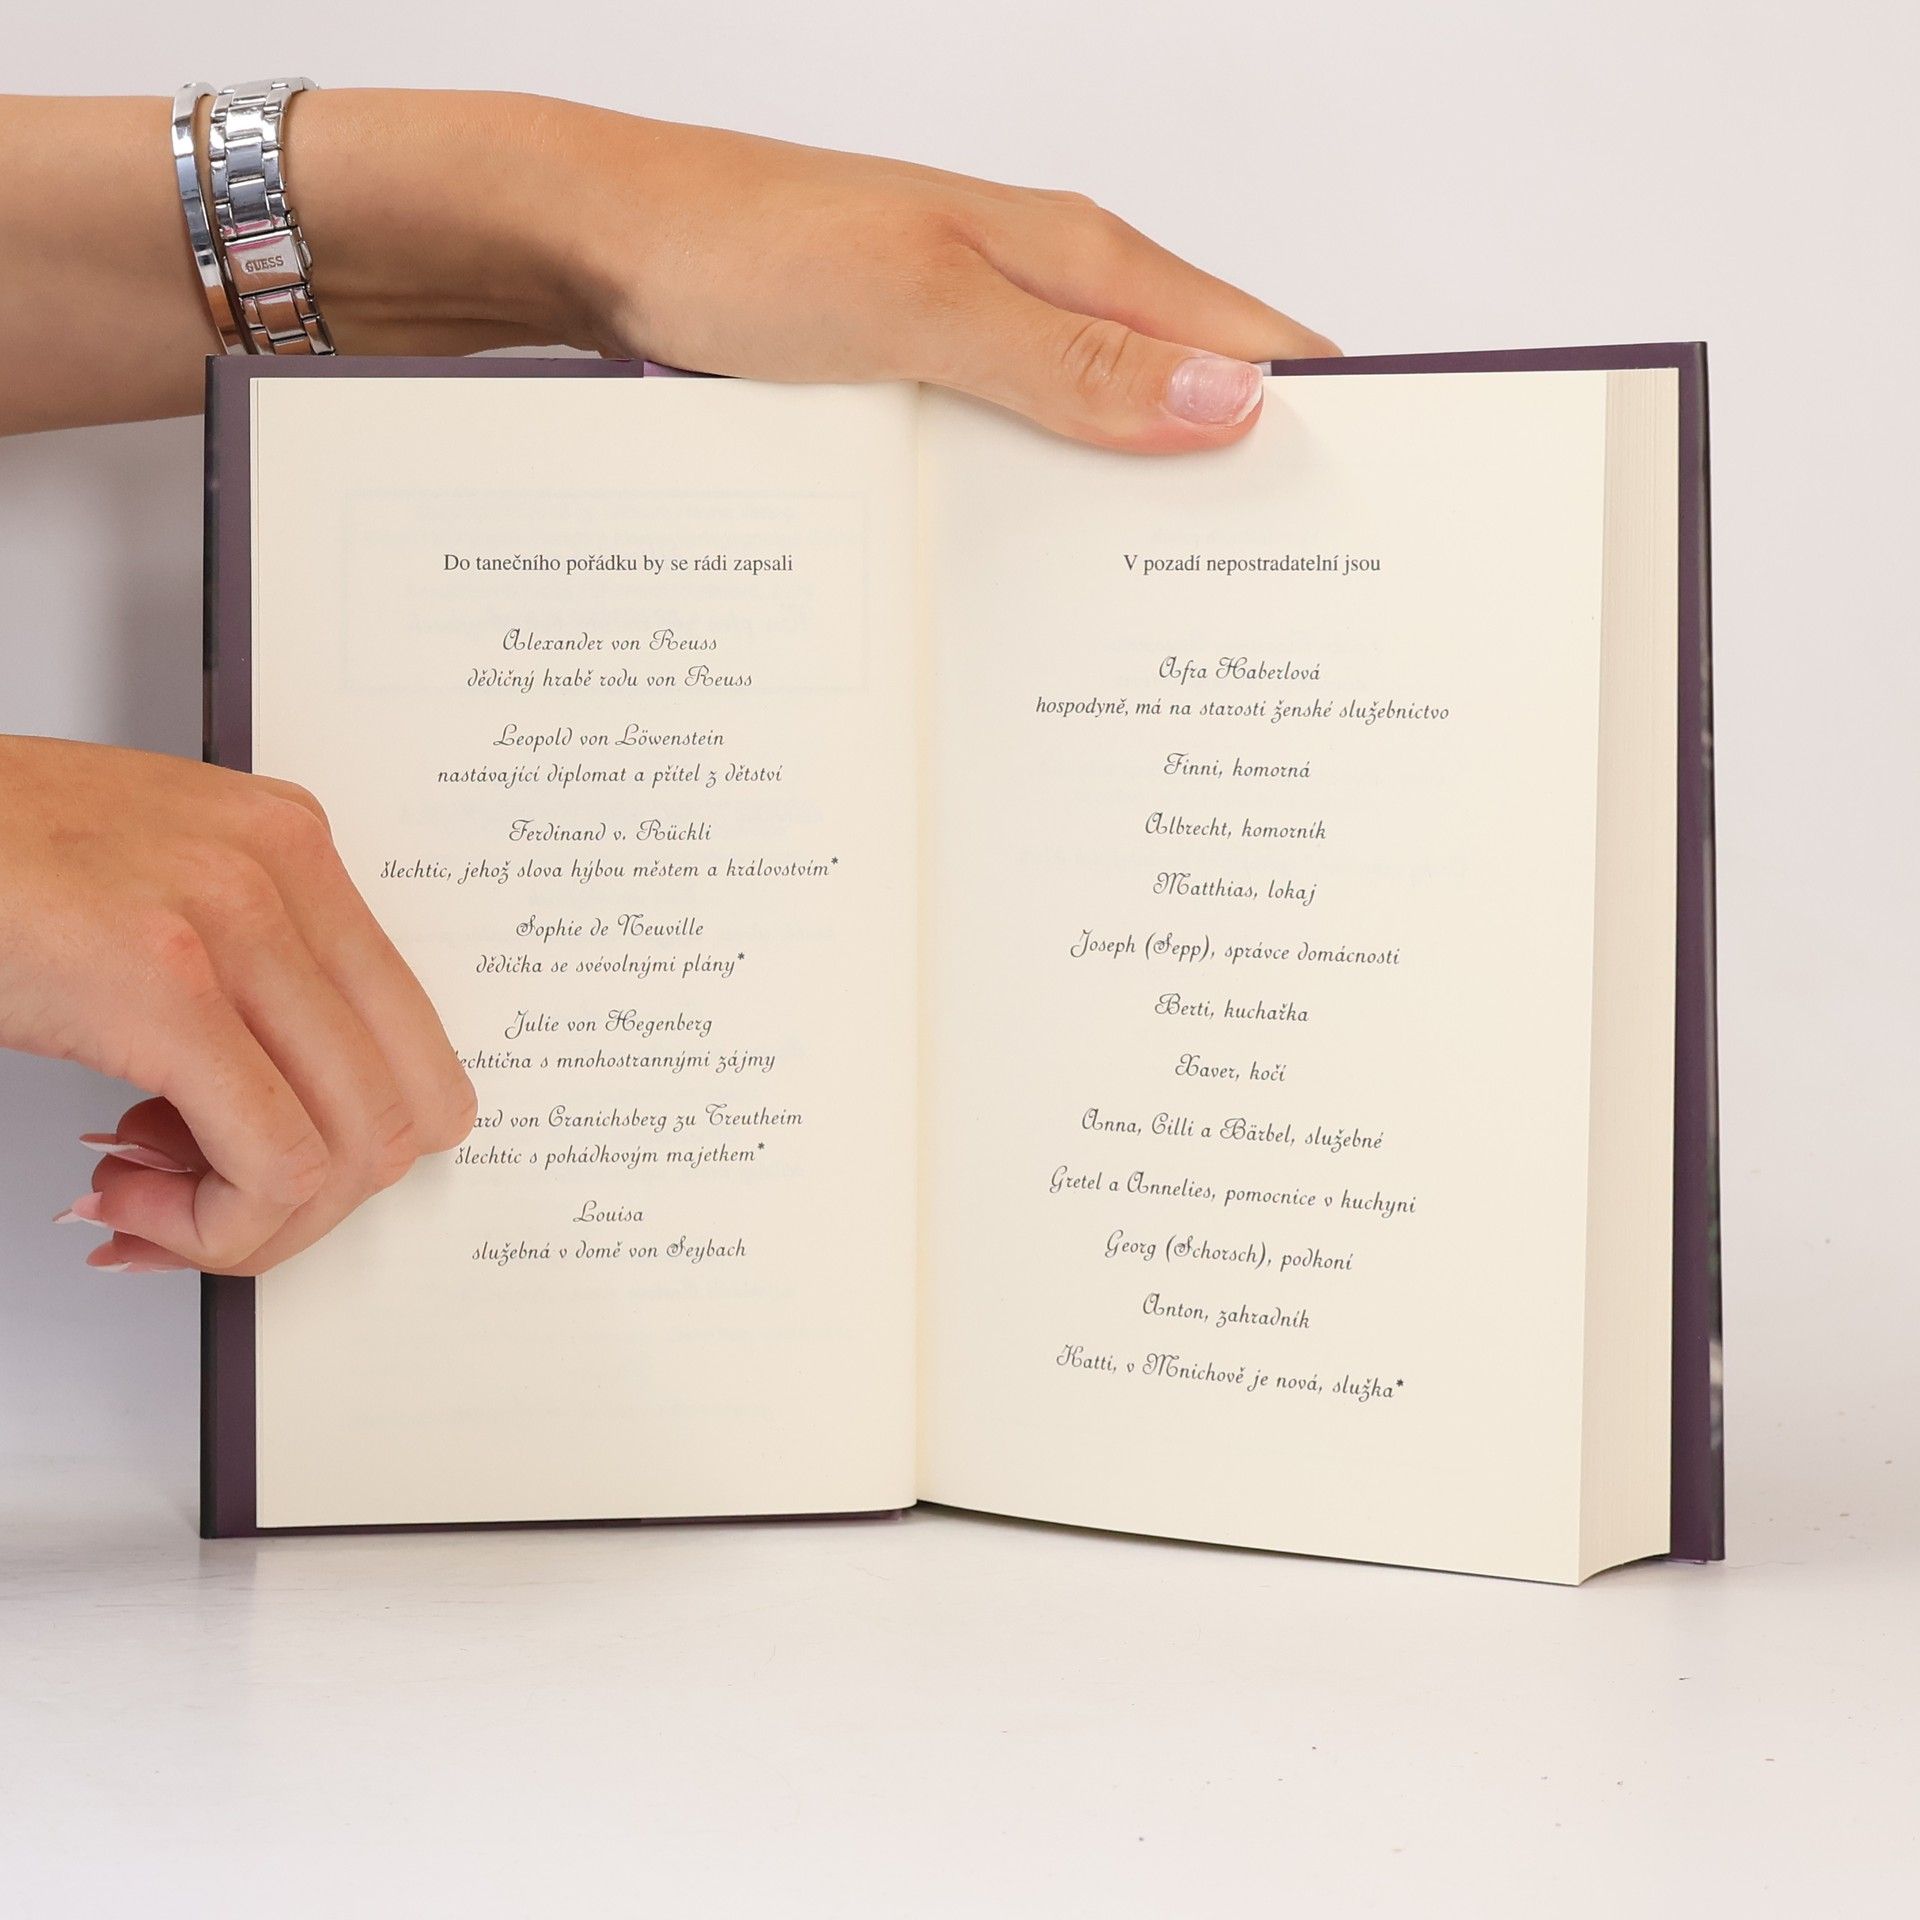 GUESS
Do tanečního pořádku by se rádi zapsali
Alexander von Reuss
dědičný hrabě rodu von Reuss
Leopold von Löwenstein
nastávající diplomat a přítel z dětství
Ferdinand v. Rückli
šlechtic, jehož slova hýbou městem a královstvím*
Sophie de Neuville
dědička se svévolnými plány*
Julie von Hegenberg
s mnohostrannými zájmy
von Cranichsberg zu Treutheim
šlechtic s pohádkovým majetkem*
Louisa
služebná v domě von Seybach
V pozadí nepostradatelní jsou
Afra Haberlová
hospodyně, má na starosti ženské služebnictvo
Finni, komorná
Albrecht, komorník
Matthias, lokaj
Joseph (Sepp), správce domácnosti
Berti, kuchařka
Xaver, kočí
Anna, Cilli a Bärbel, služebné
Gretel a Annelies, pomocnice v kuchyni
Georg (Schorsch), podkoní
Anton, zahradník
Katti, v Mnichově je nová, služka*